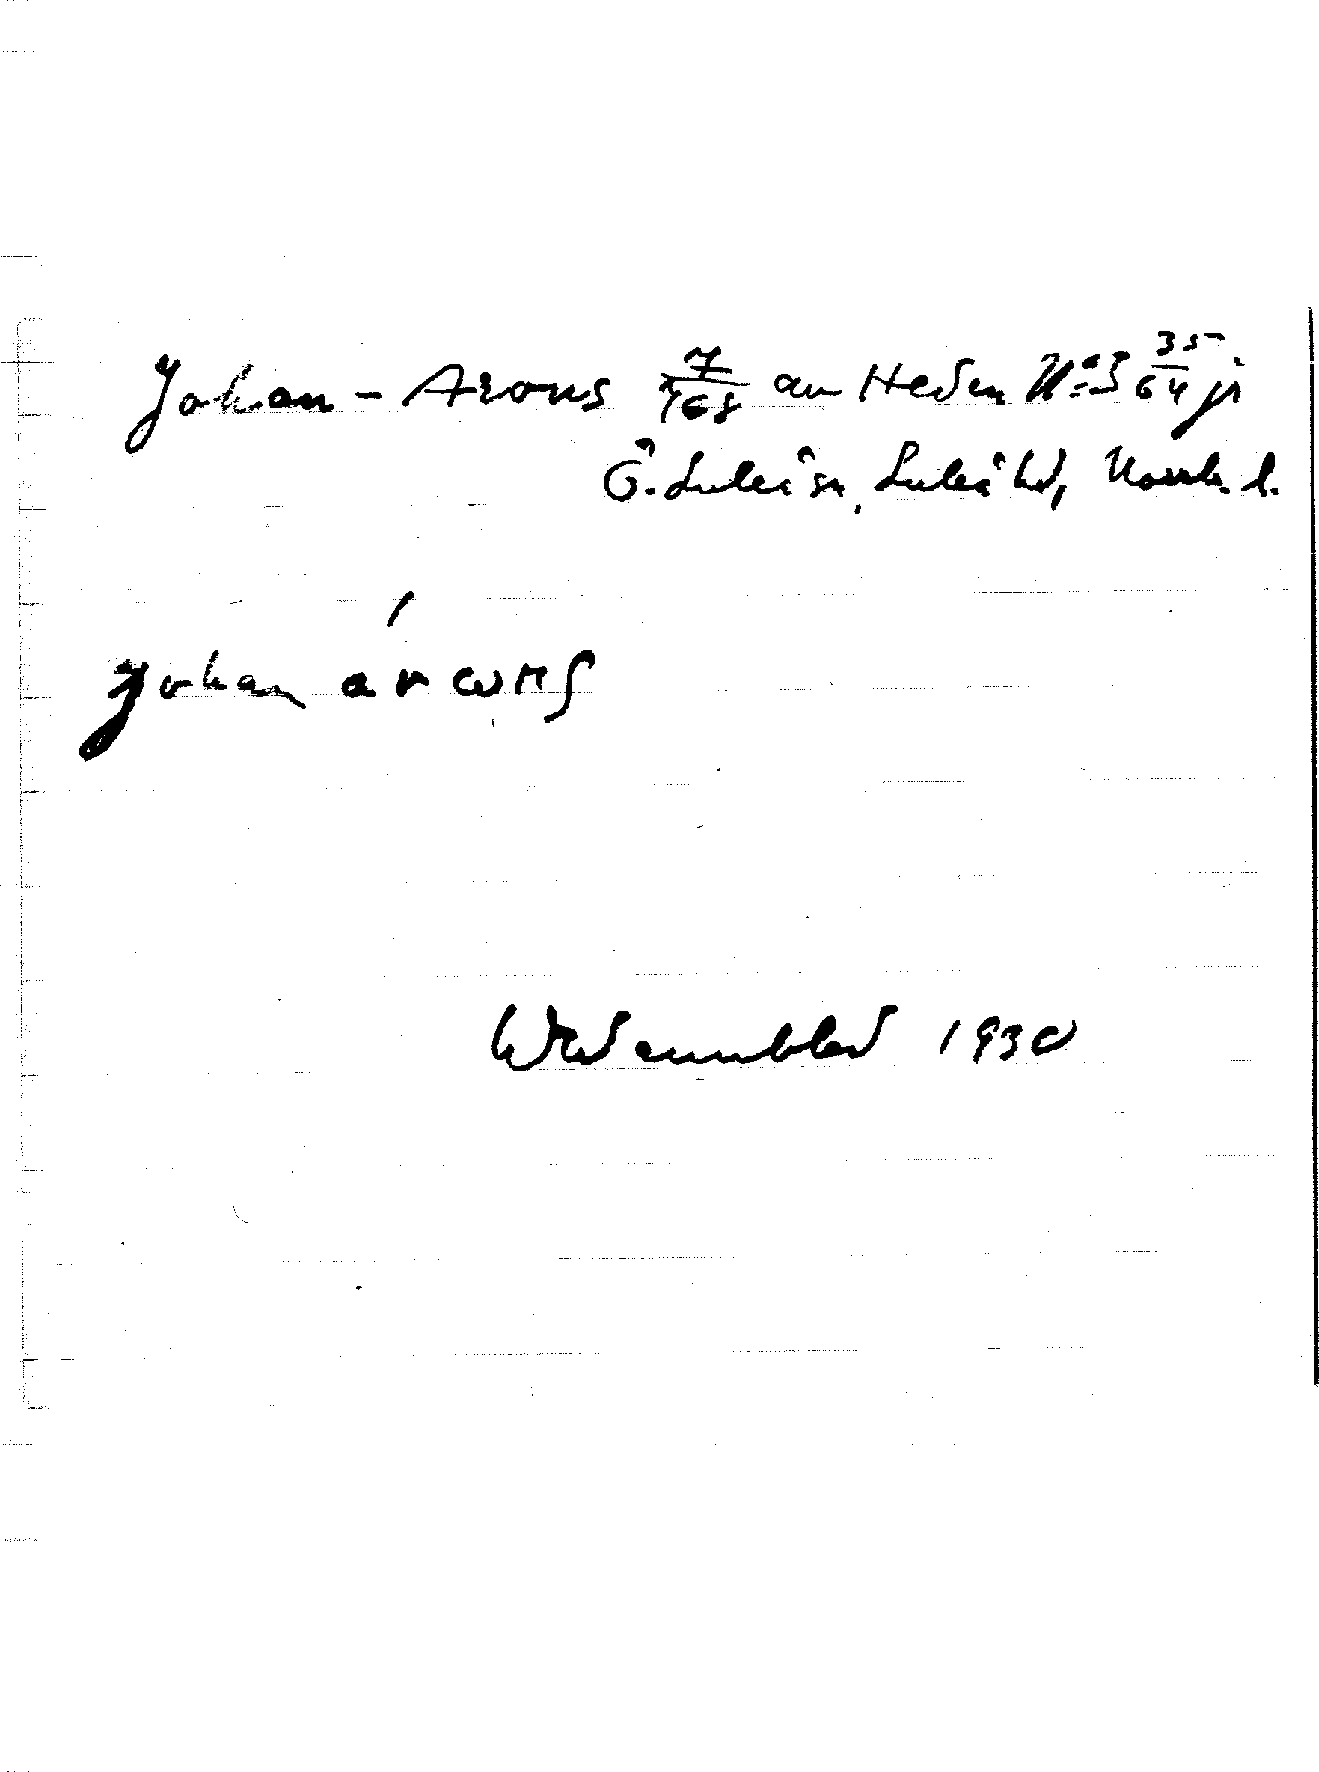 Johan-Arons 7/768 av Heden No 3 35/64 jr
Ö. Luleå sn, Luleå td, Norrb. l.
Johan árωns
Wdennblad 1930